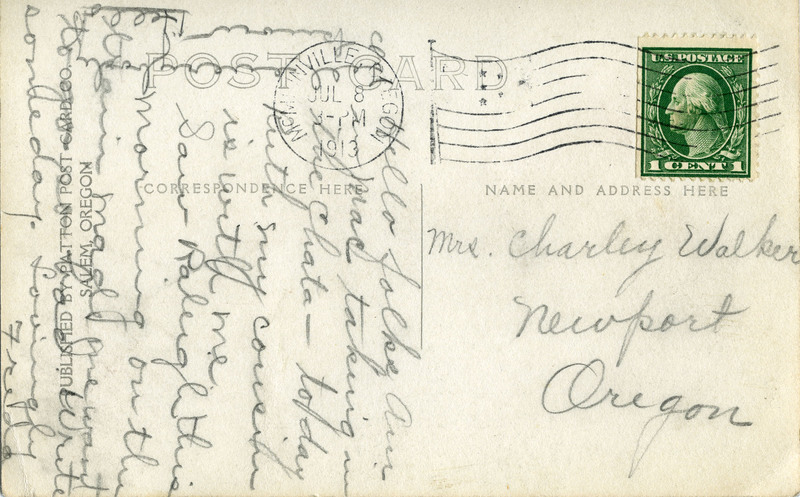 POST CARD
McMINNVILLE, OREGON
JUL 8
-PM
1913
U.S. POSTAGE
1 CENT 1
CORRESPONDENCE HERE
NAME AND ADDRESS HERE
Mrs. Charley Walker
Newport
Oregon
Hello folks, Am
in Mac taking in
the Chata— today
with my cousin
is with me.
Saw Raleigh this
morning on the
train
to go and write
someday. Lovingly
Freda
PUBLISHED BY PATTON POST CARD CO.
SALEM, OREGON